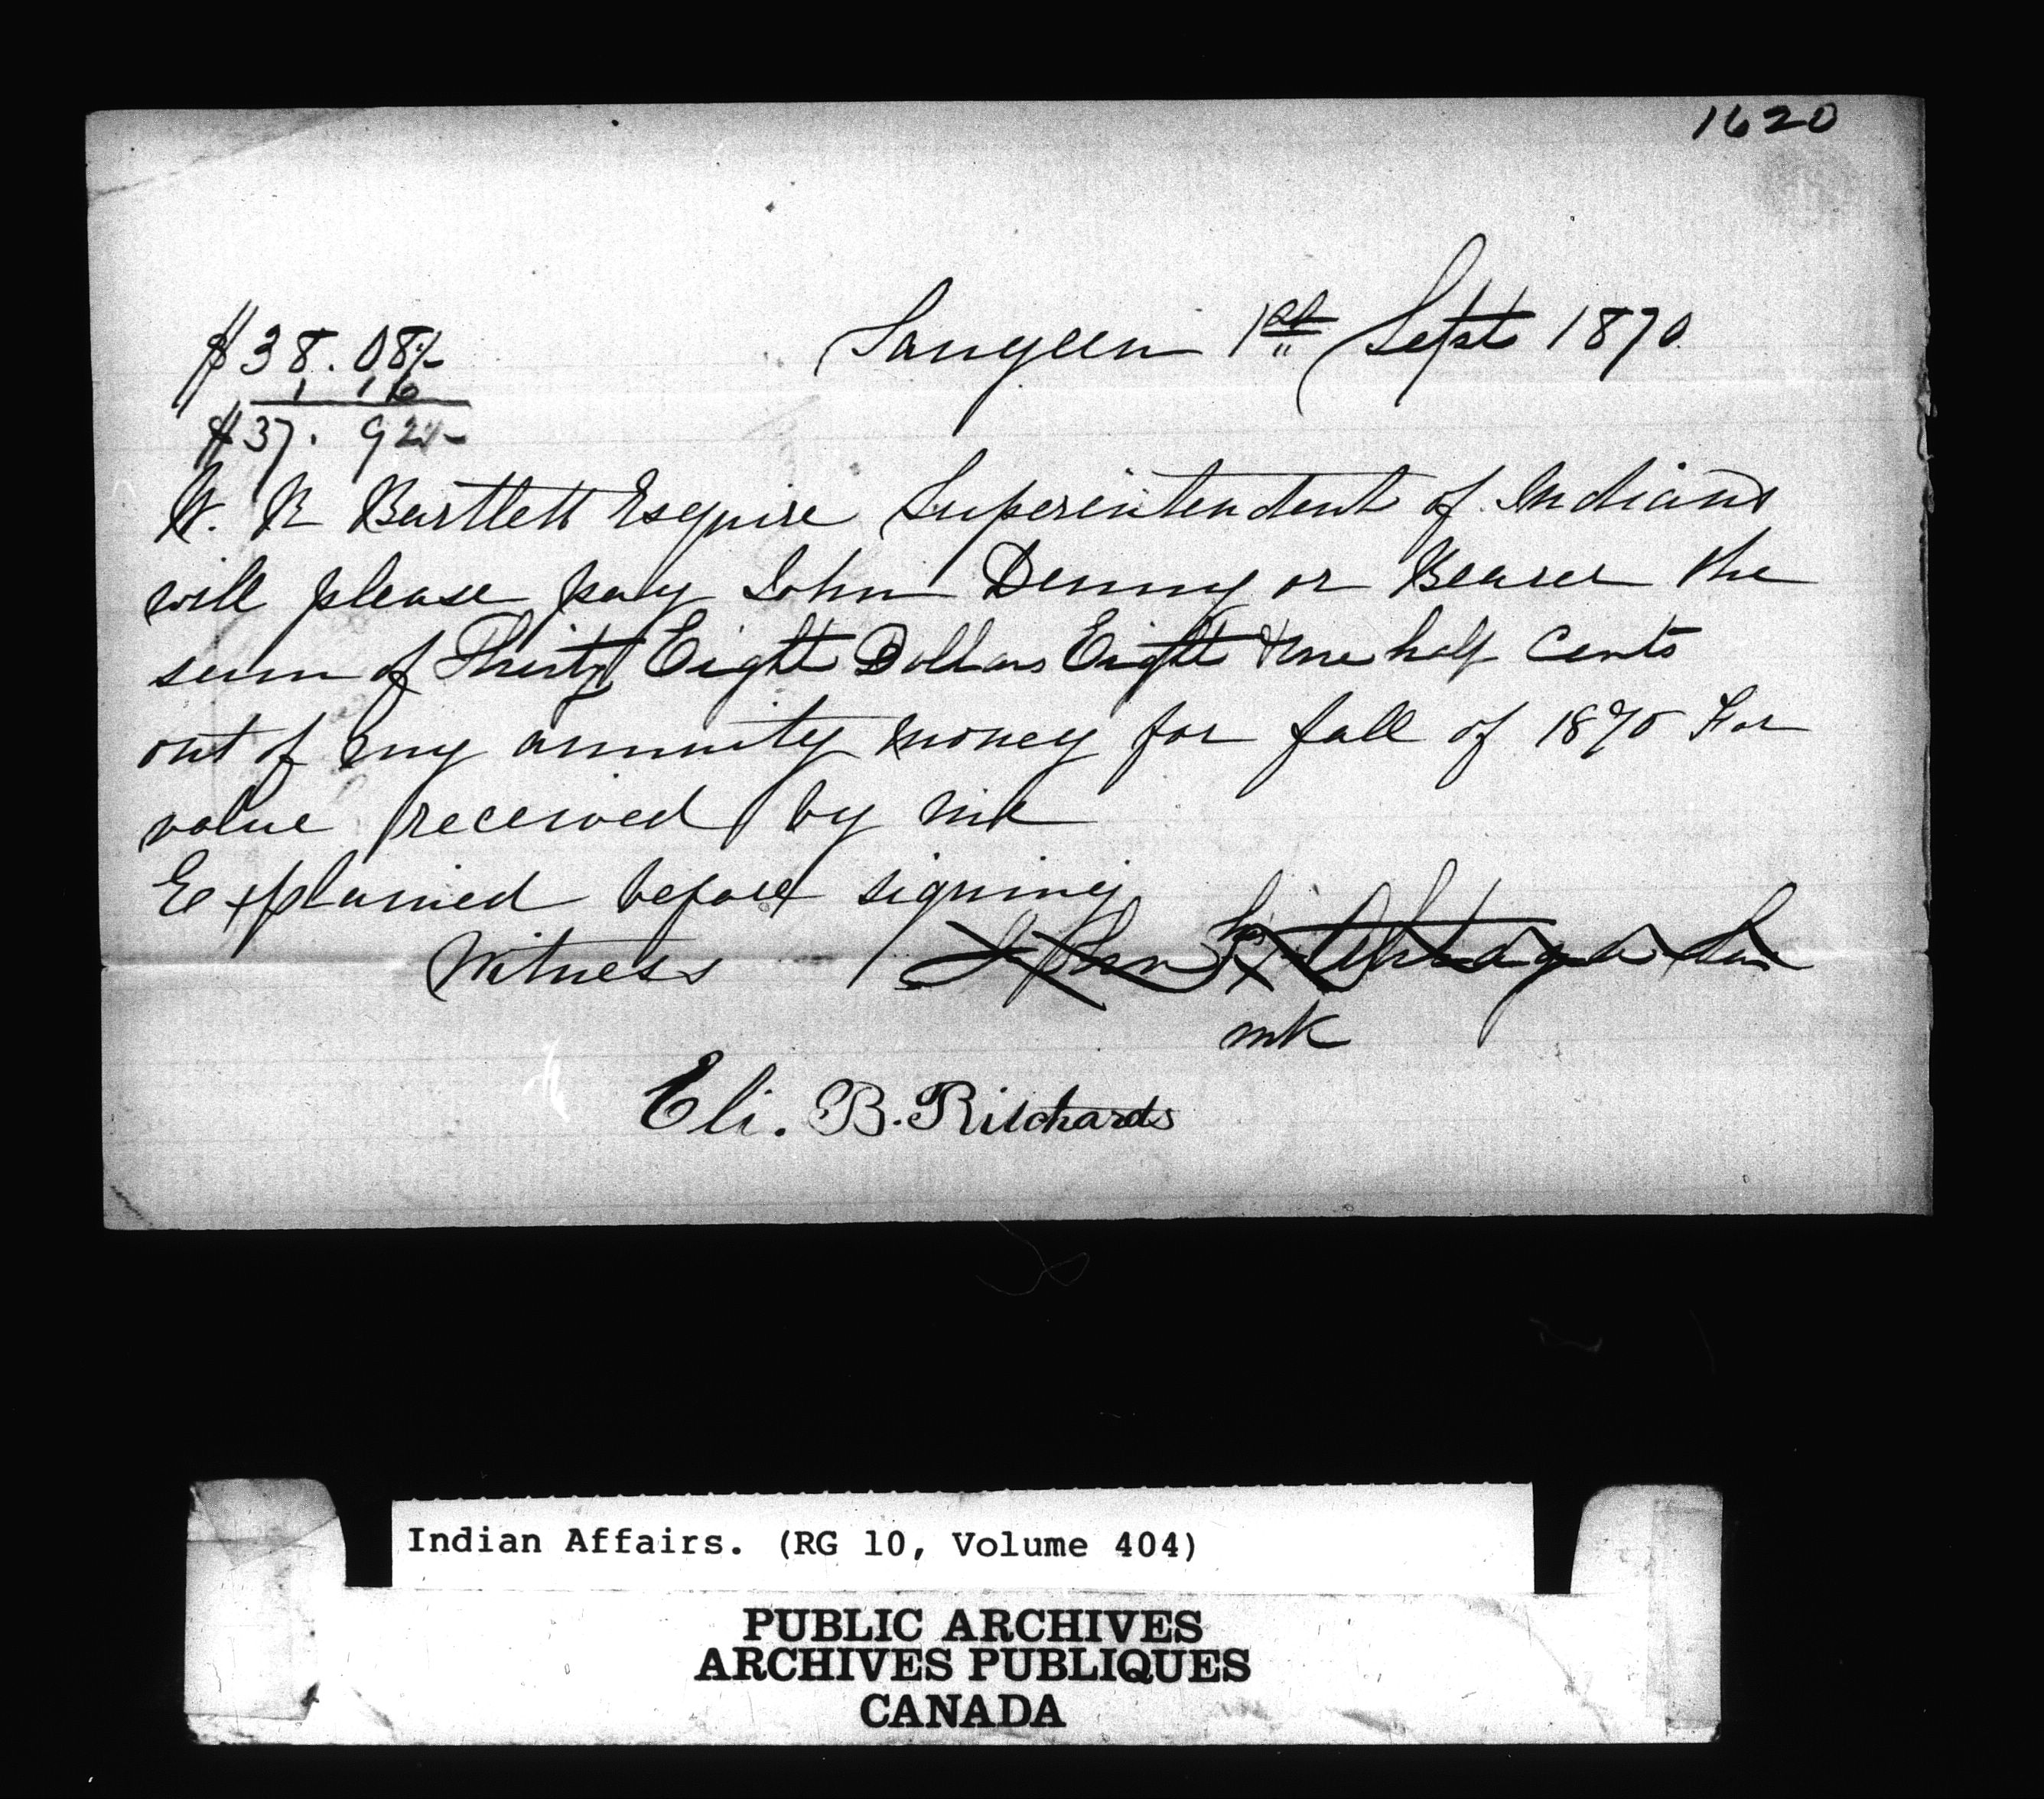 1620
$38.08½
1 16
$37.92½
Saugeen 1st Sept 1870
W. R Bartlett Esquire Superintendent of Indians
will please pay John Denny or Bearer the
sum of Thirty Eight Dollars Eight & one half Cents
out of my annuity money for fall of 1870 For
value received by me
Explained before signing
Witness John his X
mk
Eli. B. Ritchards
Indian Affairs. (RG 10, Volume 404)
PUBLIC ARCHIVES
ARCHIVES PUBLIQUES
CANADA